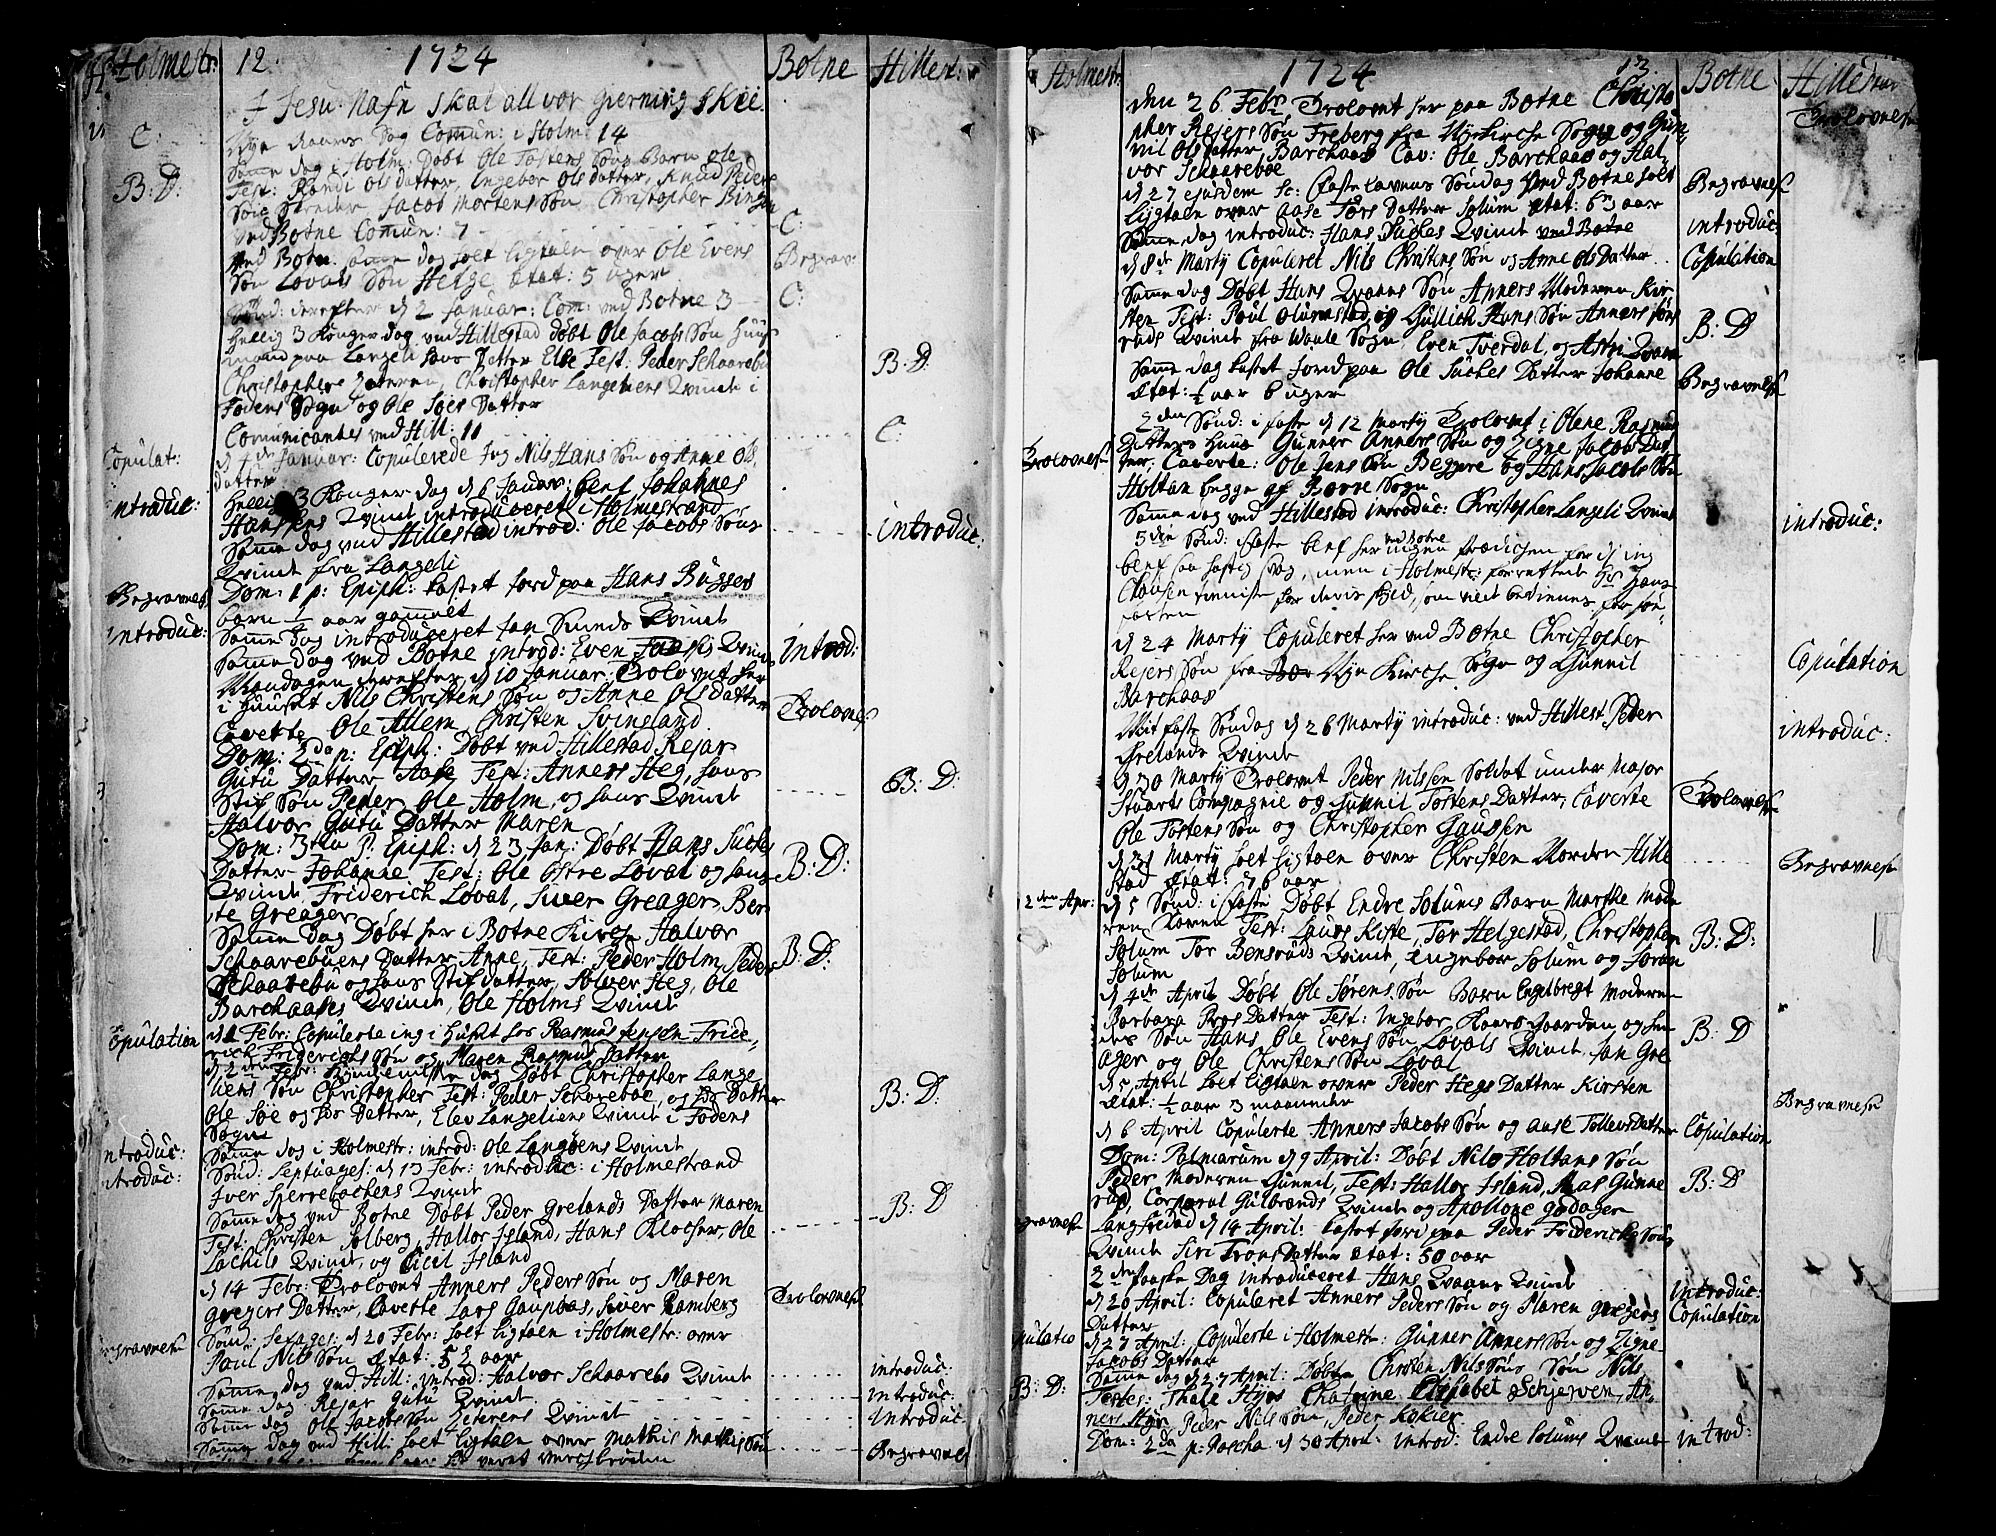 Holmestr: 12. 1724 Botne Hillest:
J Jesu Nafn skal all vor gierning skee
C: Nye Aars Dag Comun: i Holm: 14
Samme dag i Holm: Døbt Ole Tostens Søns Barn Ole
B: D: Test: Randi Olsdatter, Ingebor Olsdatter, Knud Peders
Søn Jacob Mortens Søn Christopher
ved Botne Comun: 7 C:
ved Botn samme dag holt ligtalen over Ole Evens Begrav:
Søn Lovals Søn Helge Ætat: 5 uger
Sønd: derefter d 2 Januar: Com: ved Botne 3 C:
Hellig 3 Konger dag ved Hillestad Døbt Ole Jacobs Søn Huus
mand paa Langeli hans Datter Elie Test: Peder Schaarebu B: D:
Christophers Christopher Langeliens Qvinde i
Fodens Sogn og Ole Søes Datter
Comunicantes ved Hill: 11 C:
Copulat: d 4de Januar: Copulerede Jeg Nils Hans Søn og Anne Ols
Datter
introduc: Hellig 3 Konger dag d 6 Januar: blef Johannes
Hanssens Qvinde introduceret i Holmestrand
Samme dag ved Hillestad introd: Ole Jacobs Søns introduc:
Qvinde fra Langeli
Begravelse Dom: 1 p: Epiph: kastet Jord paa Hans Bugges
barn ½ aar gammelt
introduc: Samme dag introduceret Smeds Qvinde
Samme dag ved Botne introd: Even Qvinde introd:
Mandagen derefter d 10 Januar: Trolovet her
i Huuset Nils Christens Søn og Anne Olsdatter Trolovelse
Cavette Ole Allem, Christen Svingland
Dom: 2da p: Epiph: Døbt ved Hillestad Rejar
Gutu Datter Aase Test: Anners Heg, hans B: D:
Stif Søn Peder, Ole Holm, og hans Qvinde
Halvor Gutu Datter Maren
Dom: 3tia p: Epiph: d 23 Jan: Døbt Hans Suckes
Datter Johanne Test: Ole Østre Loval og hans B: D:
Qvinde Friderich Loval, Siver Greager, Ber
te Greager
Samme dag Døbt her i Botne Kirche Halvor
Schaarebuens Datter Anne, Test: Peder Holm, Peder B: D:
Schaarebu og hans Stif datter, Solver Heg, Ole
Barchaases Qvinde, Ole Holms Qvinde
Copulation d 1 Febr: Copulerte ieg i Huset hos Rasmus Jensen Fride
rich Friderichs Søn og Maren Rasmus Datter
d 2den Febr: Kyndelmisse Dag Døbt Christopher Lange
liens Søn Christopher Test: Peder Schareboe, og hans Datter B: D:
Ole Søe og hans Datter, Elev Langeliens Qvinde i Fodens
Sogn
introduc: Samme dag i Holmestr: introd: Ole Langøens Qvinde
introduc: Sønd: Septuages: d 13 Febr: introduc: i Holmestrand
Iver Sperrebachens Qvinde
Samme dag ved Botne Døbt Peder Grelands Datter Maren B: D:
Test: Christen Solberg, Hallor Island, Hans Klocker, Ole
Lachils Qvinde, og Cicil Island
d 14 Febr: Trolovet Anners Peders Søn og Maren Trolovelse
gregers Datter, Cavette Lars Gaupaas, Siver Ramberg
Begravelse Sønd: Sexages: d 20 Febr: holt ligtalen i Holmestr: over
Paul Nils Søn Ætat: 52 aar
Samme dag ved Hill: introd: Halvor Schaarebo Qvinde introduc:
Samme dag Rejar Gutu Qvinde introduc:
Samme dag Ole Jacobs Søn Qvinde introduc:
Samme dag ved Hill: holt ligtalen over Mathis Mathis Søn Begravelse

Holmestr: 1724 13. Botne Hillestad
den 26 Febr: Trolovet her paa Botne Christo Trolovelse
pher Rejers Søn Freberg fra Nykirche Sogn og Gun
nil Olsdatter Barchaas Cav: Ole Barchaas og Hal
vor Schaareboe
d 27 ejusdem sc: Faste lavens Søndag ved Botne holt Begravelse
Ligtalen over Aase Tørs Datter Solum Ætat: 63 aar
Samme dag introduc: Hans Suckes Qvinde ved Botne introduc:
d 8de Marty Copuleret Nils Christens Søn og Anne Olsdatter Copulation
Samme dag Døbt Hans Qvanns Søn Anners Moderen Kir
sten Test: Poul Olumstad og Gullich Hans Søn Anners B: D
røds Qvinde fra Waale Sogn Even Tverdal, og Astri Qvann
Samme dag kastet Jord paa Ole Suckes Datter Johanne Begravelse
Ætat: ½ aar 6 uger
2den Sønd: i faste d 12 Marty Trolovet i Olene Rasmus
Trolovelse Datters Huus Gunner Anners Søn og Zigne Jacobs Dat
ter, Caverte: Ole Jens Søn Beggere og Hans Jacobs Søn
Holtan begge af Borre Sogn
Samme dag ved Hillestad introduc: Christopher Langeli Qvinde introduc:
5den Sønd: i faste blef her ved Botne ingen prædichen for d ieg
blef saa hastig svag, men i Holmestr: forrettede Hr Hans
Clausen tieniste for deris sted, om vilde betienes for
d 24 Marty Copuleret her ved Botne Christopher
Rejers Søn fra Nye Kirche Sogn og Gunnil Copulation
Barchaas
Mit faste Søndag d 26 Marty introduc: ved Hillest Peder introduc:
Grelands Qvinde
d 30 Marty Trolovet Peder Nilssen Soldat under Major
Stuarts Compagnie og Gunnil Tostens Datter, Caverte Trolovelse
Ole Tostens Søn og Christopher Gaussen
d 31 Marty holt ligtalen over Christen Norden Hille Begravelse
stad Ætat: 76 aar
2den Apr: d 5 Sønd: i faste Døbt Endre Solums Barn Marthe Mode
ren Karen Test: Laurs Kiste, Tor Helgestad, Christopher B: D:
Solum Tor Bensrøds Qvinde, Ingebor Solum og Joran
Solum
d 4de April Døbt Ole Sørens Søn Barn Engelbregt Moderen
Barbara Pros Datter Test: Ingebor og An B: D
ders Søn Hans Ole Evens Søn Lovals Qvinde, Jan Gre
ager og Ole Christens Søn Loval
d 5 April holt ligtalen over Peder Hegs Datter Kirsten
Ætat: ½ aar 3 maaneder Begravelse
d 6 April Copulerte Anners Jacobs Søn og Aase Tollevs Datter Copulation
Dom: Palmarum d 9 April: Døbt Nils Holtans Søn
Peder Moderen Gunnil, Test: Hallor Island, Aas Gunne B: D
rød, Corporal Gulbrands Qvinde og Apollone godager
Begravelse Langfredag d 14 April: kastet Jord paa Peder Friderichs Søns
Qvinde Siri Trons Datter Ætat: 50 aar
2den Paaske Dag introduceret Hans Qvanns Qvinde introduc:
d 20 April: Copuleret Anners Peders Søn og Maren gregers Copulation
Datter
Copulatio d 27 April: Copulerte i Holmestr: Gunner Anners Søn og Zigne
Jacobs Datter
B: D: Samme dag d 27 April: Døbt Christen Nils Søns Søn Nils
Testes: Thale Chatrine Elisabet Schjerven, An
ners Peder Nils Søn, Peder Kokier
Dom: 2da p: Pascha d 30 April: introd: Endre Solums Qvinde introd: